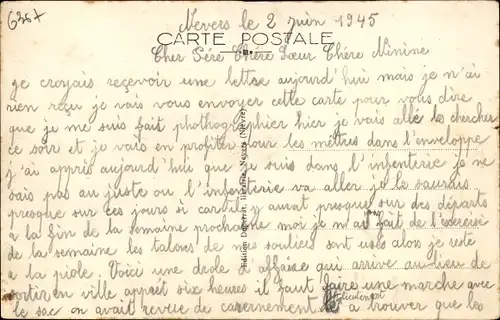 6367
Nevers le 2 Juin 1945
CARTE POSTALE
Cher Péré Chére Sœur Chére Ninine
je croyais reçevoir une lettse aujourd'hui mais je n'ai
rien reçu je vais vous envoyer cette carte pour vous dire
que je me suis fait phothographier hier je vais allé les chercher
ce soir et je vais en profiter pour les méttres dans l'enveloppe
j'ai appris aujourd'hui que je suis dans l'infenterie je ne
sais pas au juste ou l'infenterie va aller je le saurais
presque sur ces jours si car il y aurat presque sur des départs
a la fin de la semaine prochaine moi je n'ai pas fait de l'exercise
de la semaine les talons de mes souliers sont usés alors je reste
a la piole. Voici une drole d'affaise qui arrive au lieu de
sortir en ville apprét six heures il faut faire une marche avec
le sac on avait revue de casernement a trouver que les
Édition librairie, Nevers (Nièvre)